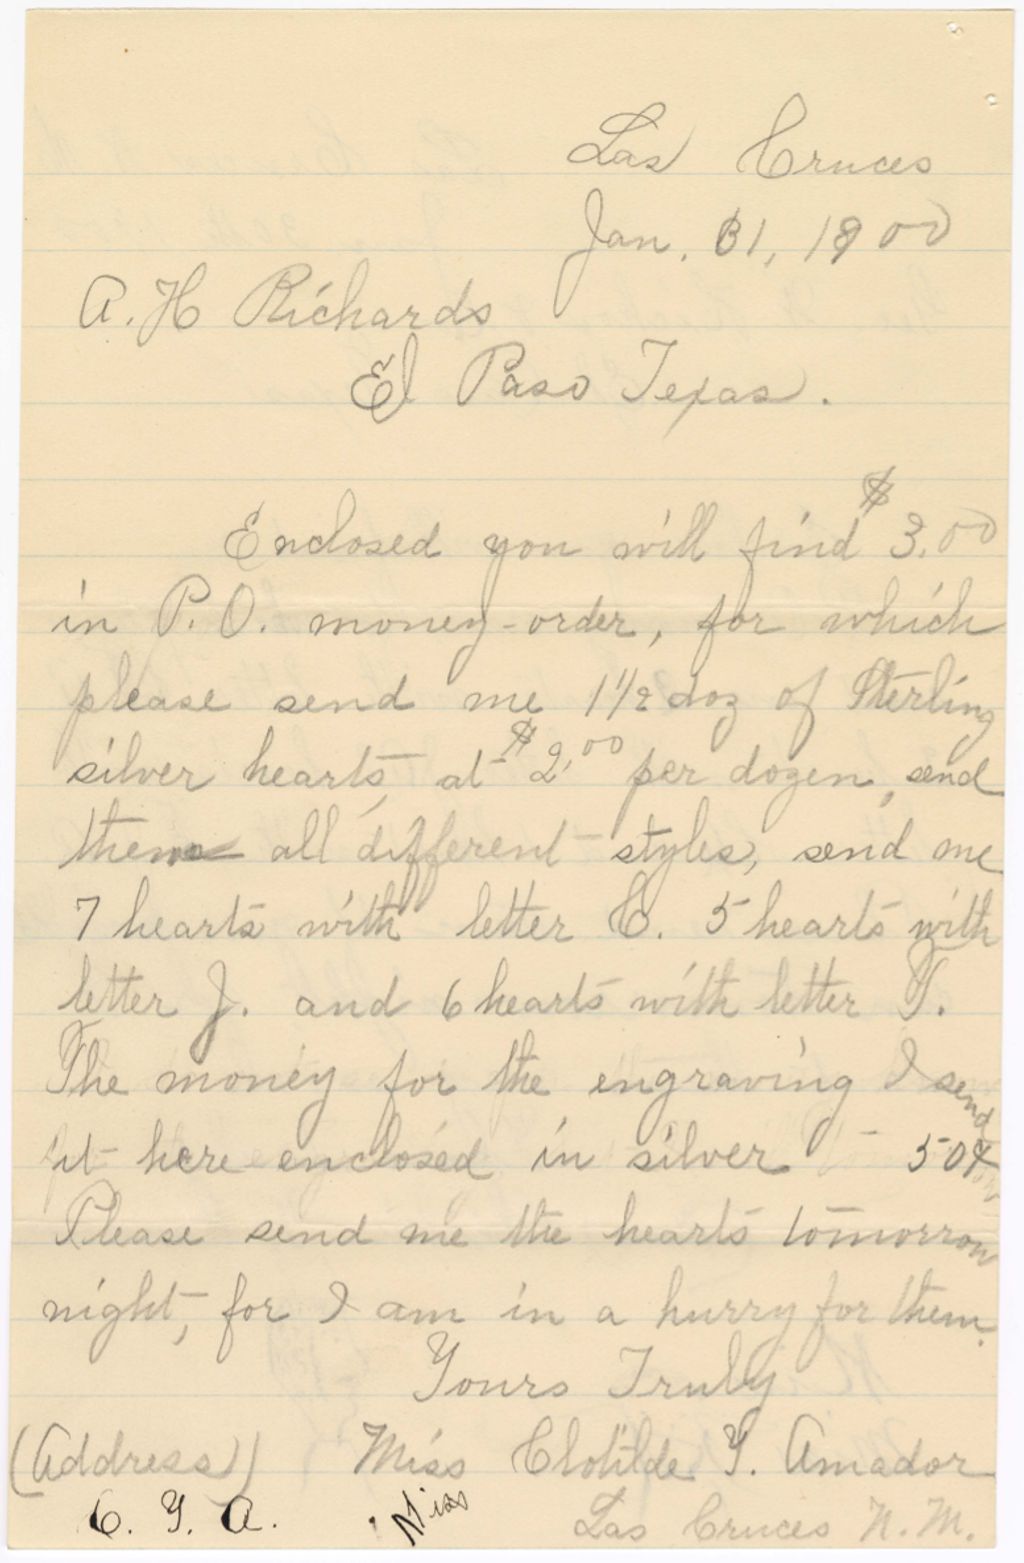 Las Cruces
Jan. 31, 1900
A. H Richards
El Paso Texas.
Enclosed you will find $3.00
in P. O. money-order, for which
please send me 1 1/2 doz of Sterling
silver hearts, at $2.00 per dozen, send
them all different styles, send me
7 hearts with letter C. 5 hearts with
letter J. and 6 hearts with letter T.
The money for the engraving I send
it here enclosed in silver - 50¢
Please send me the hearts tomorrow
night, for I am in a hurry for them.
Yours Truly
(Address) Miss Clotilde Y. Amador
C. Y. A. Miss Las Cruces N. M.